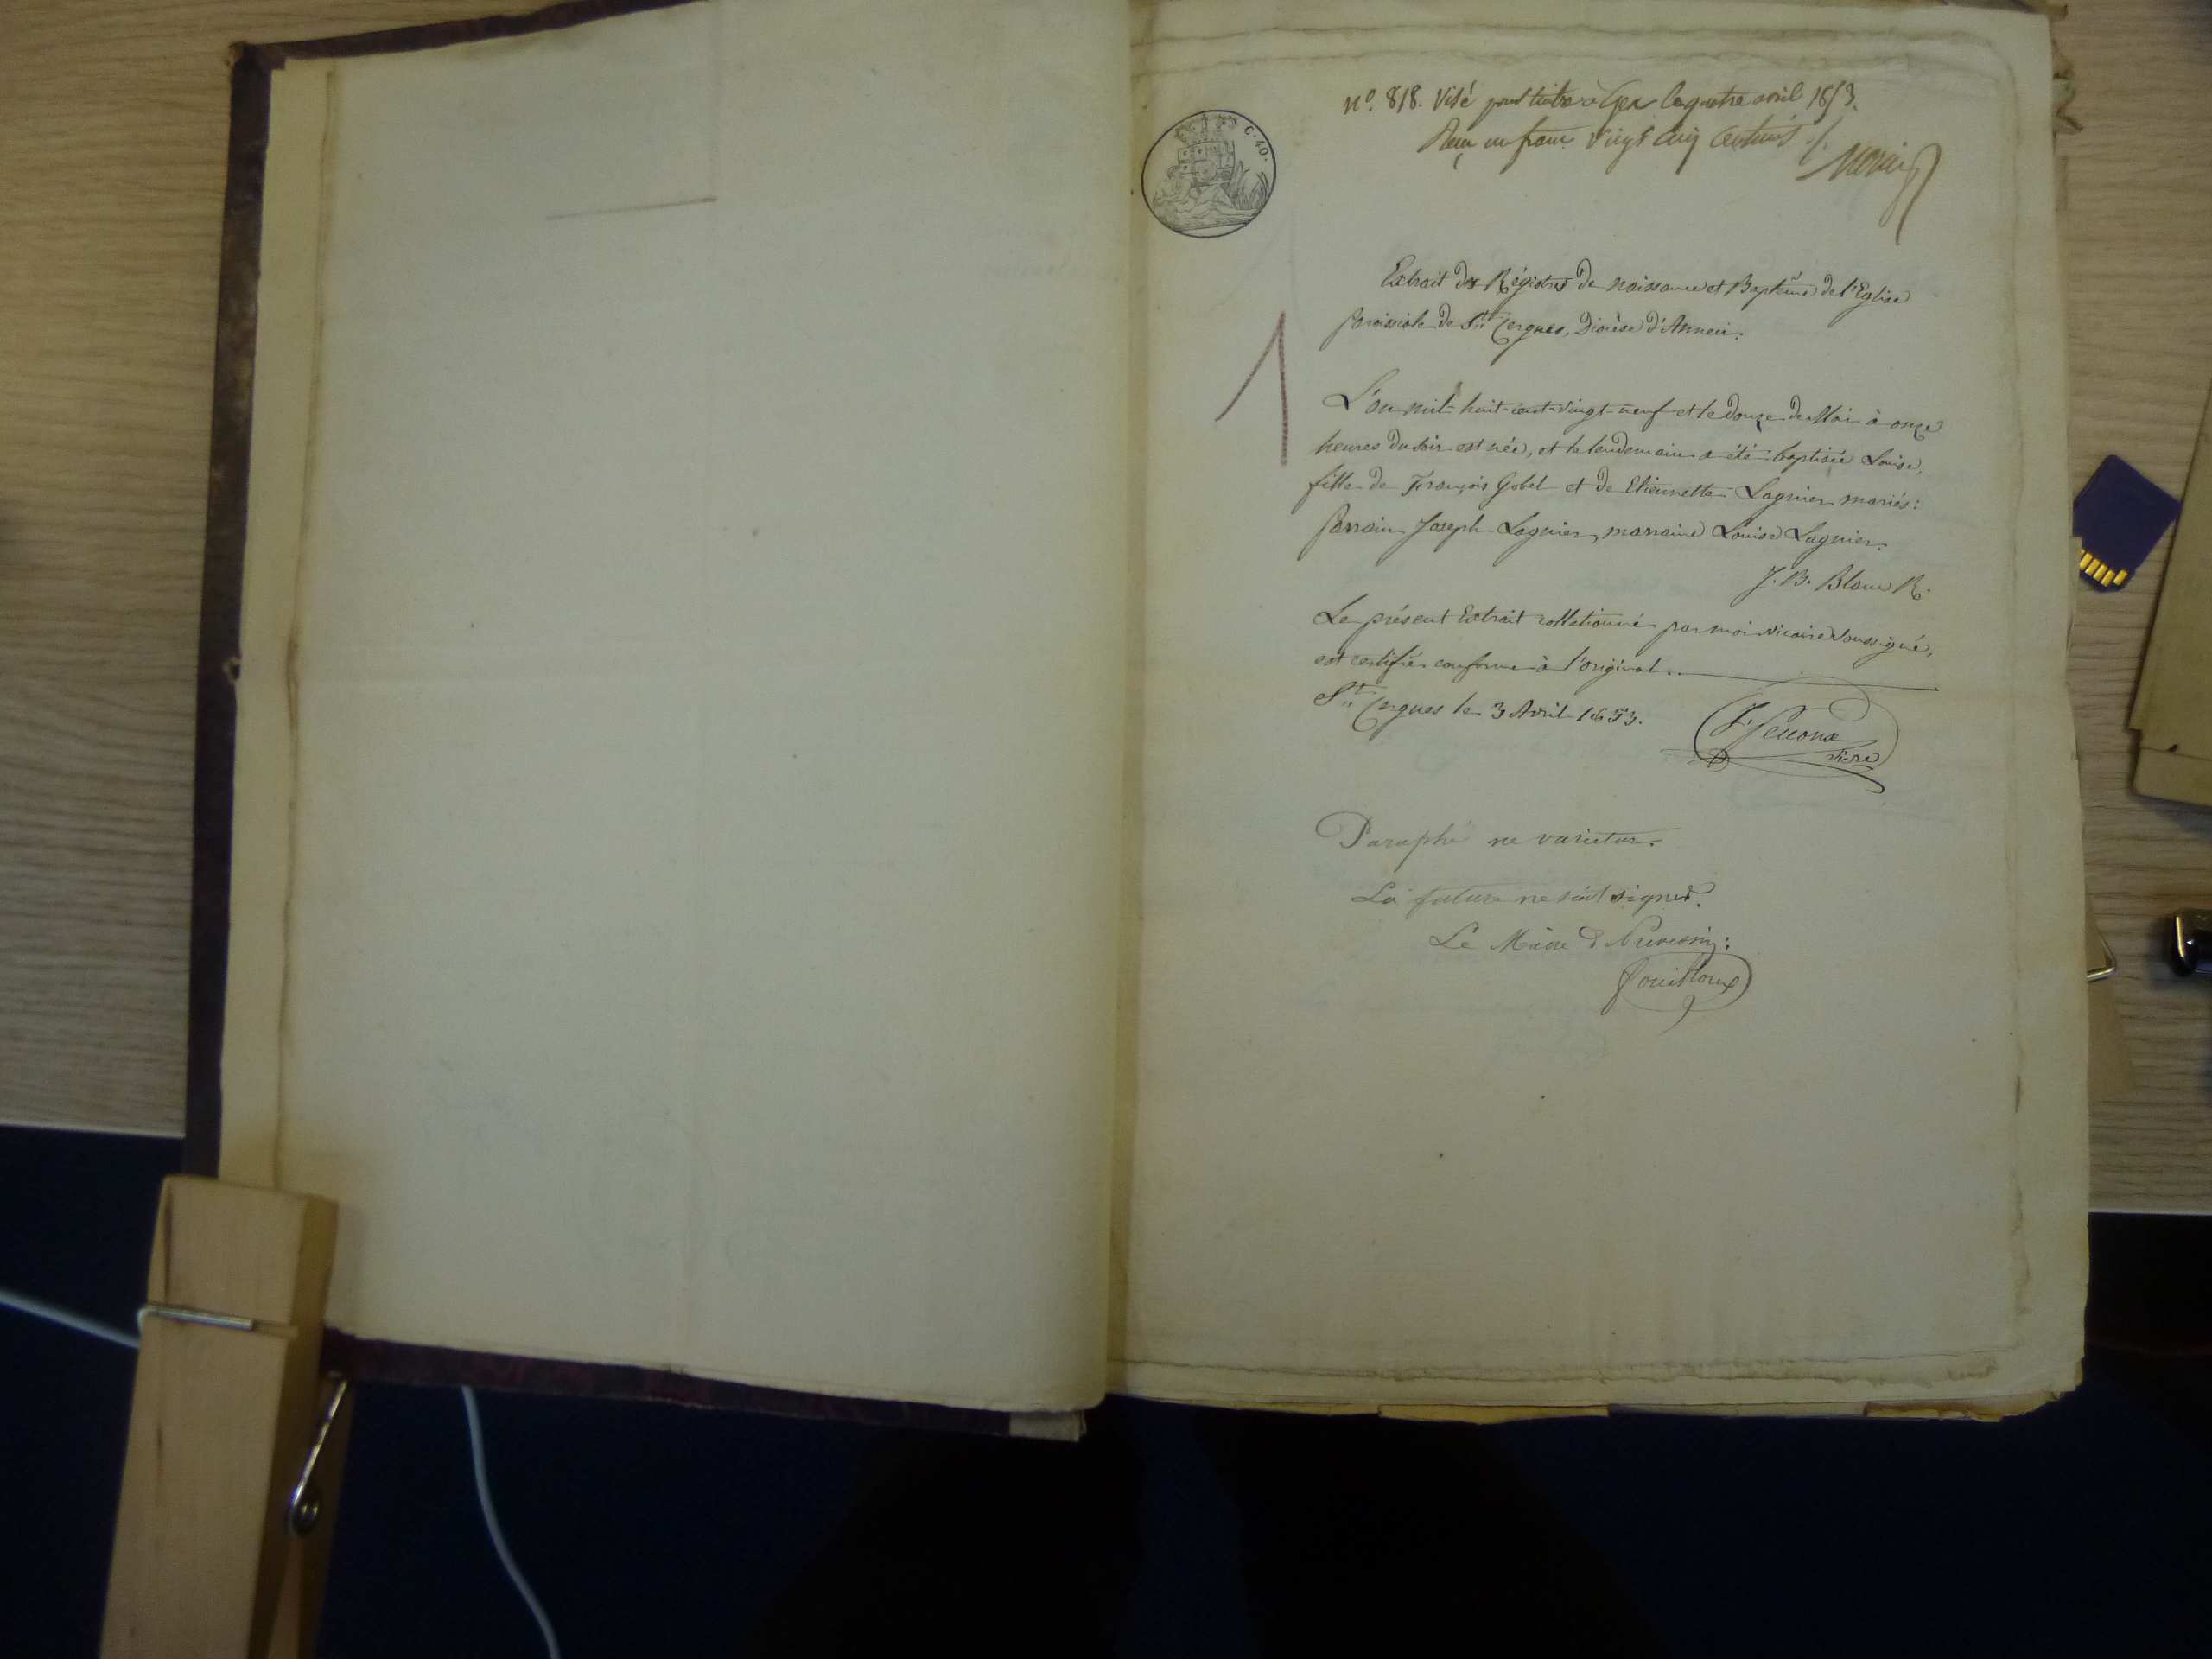 C. 40.
N.° 818. Visé pour timbre à Gex le quatre avril 1853.
Reçu un franc vingt cinq centimes
1
Extrait des Régistres de naissance et Baptême de l'Eglise
Paroissiale de St. Cergues, Diocèse d'Anneci.
L'an mil huit-cent-vingt-neuf et le douze de Mai à onze
heures du soir est née, et le lendemain a été baptisée Louise,
fille de François Gobel et de Etiennette Lagnier mariés:
Parrain Joseph Lagnier, marraine Louise Lagnier.
J. B. Blanc R.
Le présent Extrait collationné par moi vicaire soussigné,
est certifié conforme à l'original..
St. Cergues le 3 Avril 1853.
vicre
Paraphé ne varietur.
La future ne sait signer.
Le Maire